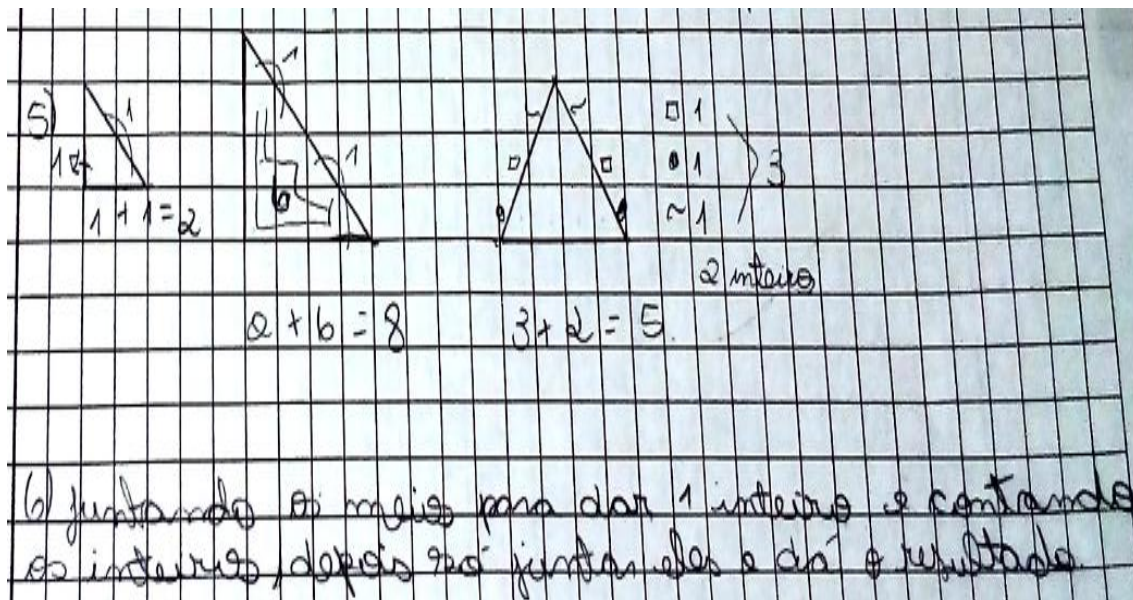 5)
1
1
1 + 1 = 2
1
1
6
2 + 6 = 8
□ 1
• 1
~ 1
3
2 inteiros
3 + 2 = 5.
6) juntando os meios para dar 1 inteiro e contando
os inteiros, depois só juntar eles e dá o resultado.